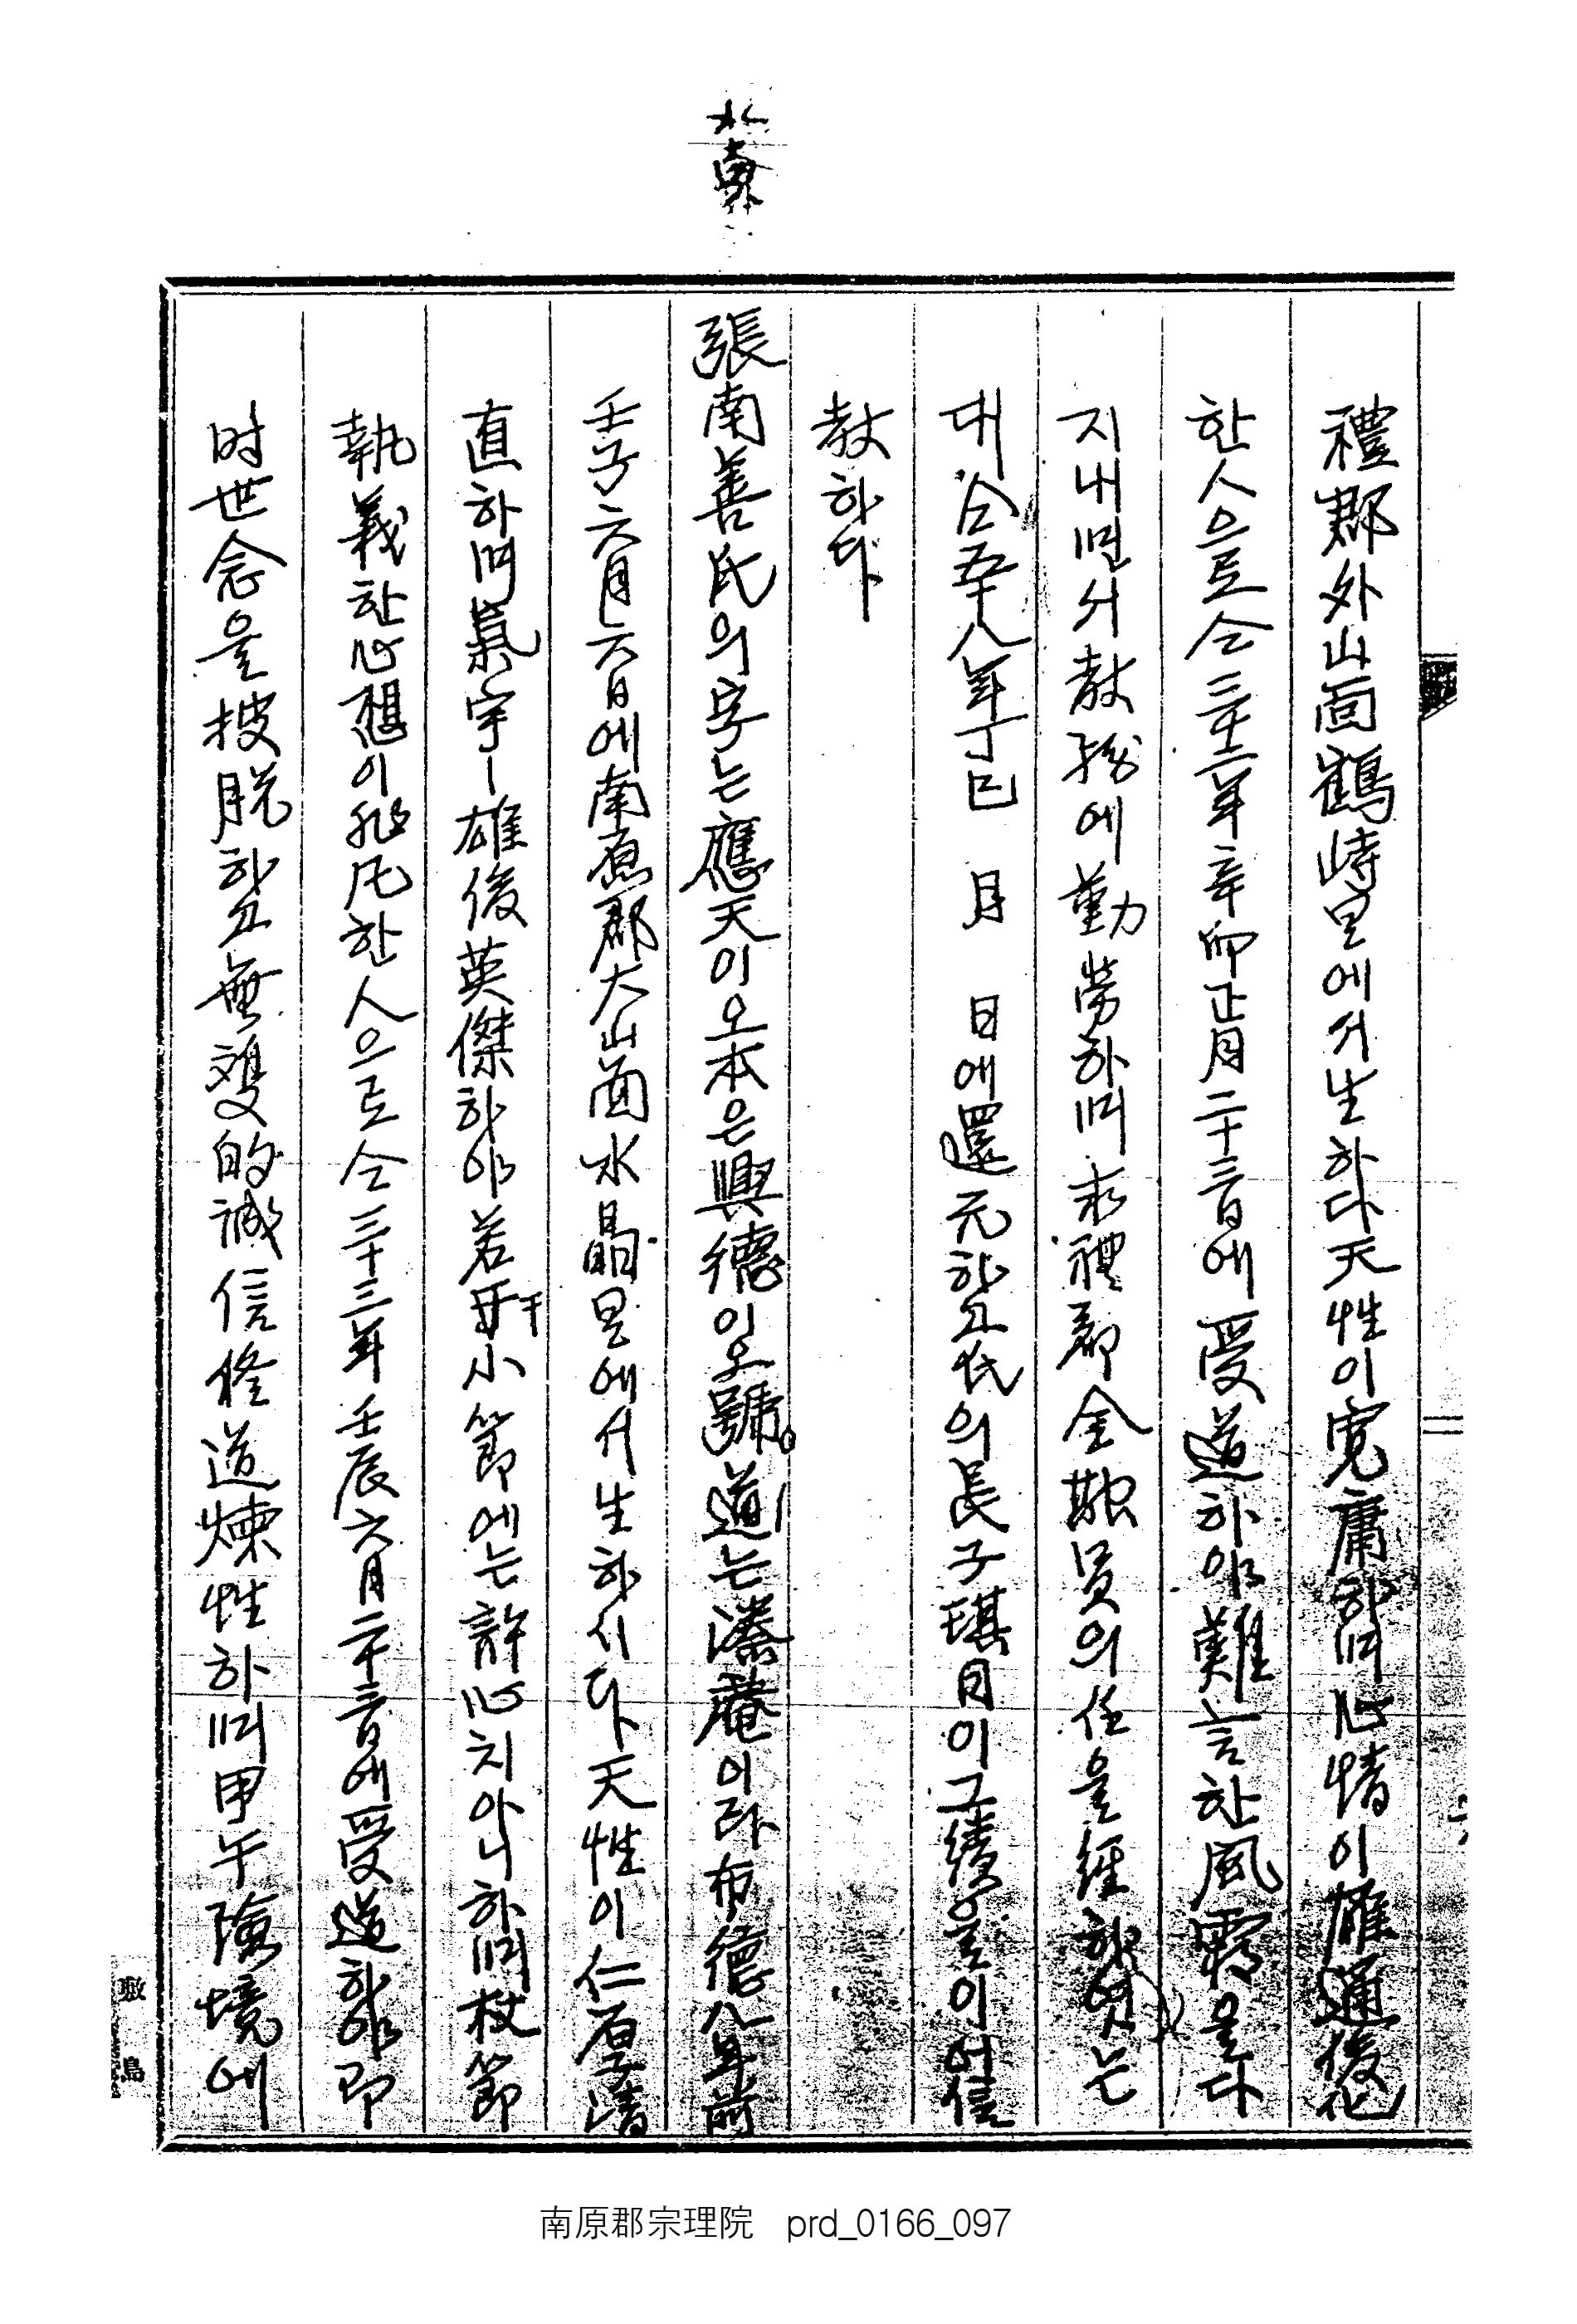 禮郡外山面鶴峙里에서生하다天性이寬庸하며心情이雄通俊
한人으로仝三十二年辛卯正月二十三日에受道하야難言한風霜을다
지내면서敎務에勤勞하며求禮郡金融員의任을經하엿는
대仝五十八年丁巳 月 日에還元하고氏의長子琪日이그績을이어信
敎하다
張南善氏의字는應天이오本은興德이오號道는濠菴이라布德八年前
壬子六月六日에南原郡大山面水晶里에서生하시다天性이仁厚淸
直하며氣宇ㅣ雄俊英傑하야若干小節에는許心치아니하며杖節
執義한心想이非凡한人으로仝三十三年壬辰六月二十三日에受道하야即
时世念을披脫하고無雙的誠信修道煉性하며甲午險境에
南原郡宗理院 prd_0166_097